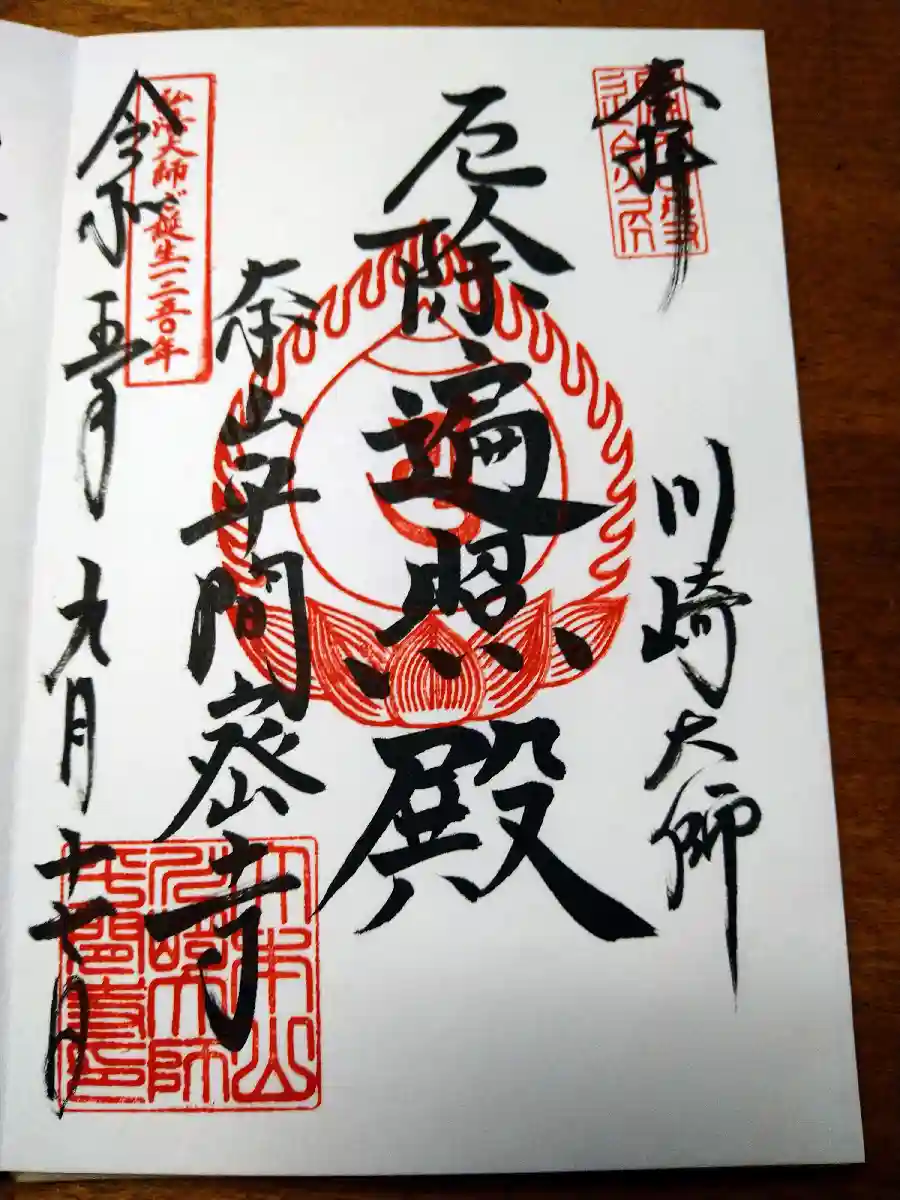 奉拝
川崎大師
厄除遍照殿
大本山平間寺
弘法大師ご誕生一二五〇年
令和五年九月十七日
大本山
川崎大師